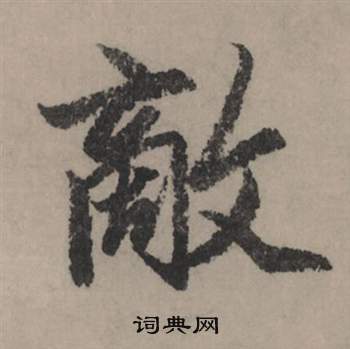 敵
词典网